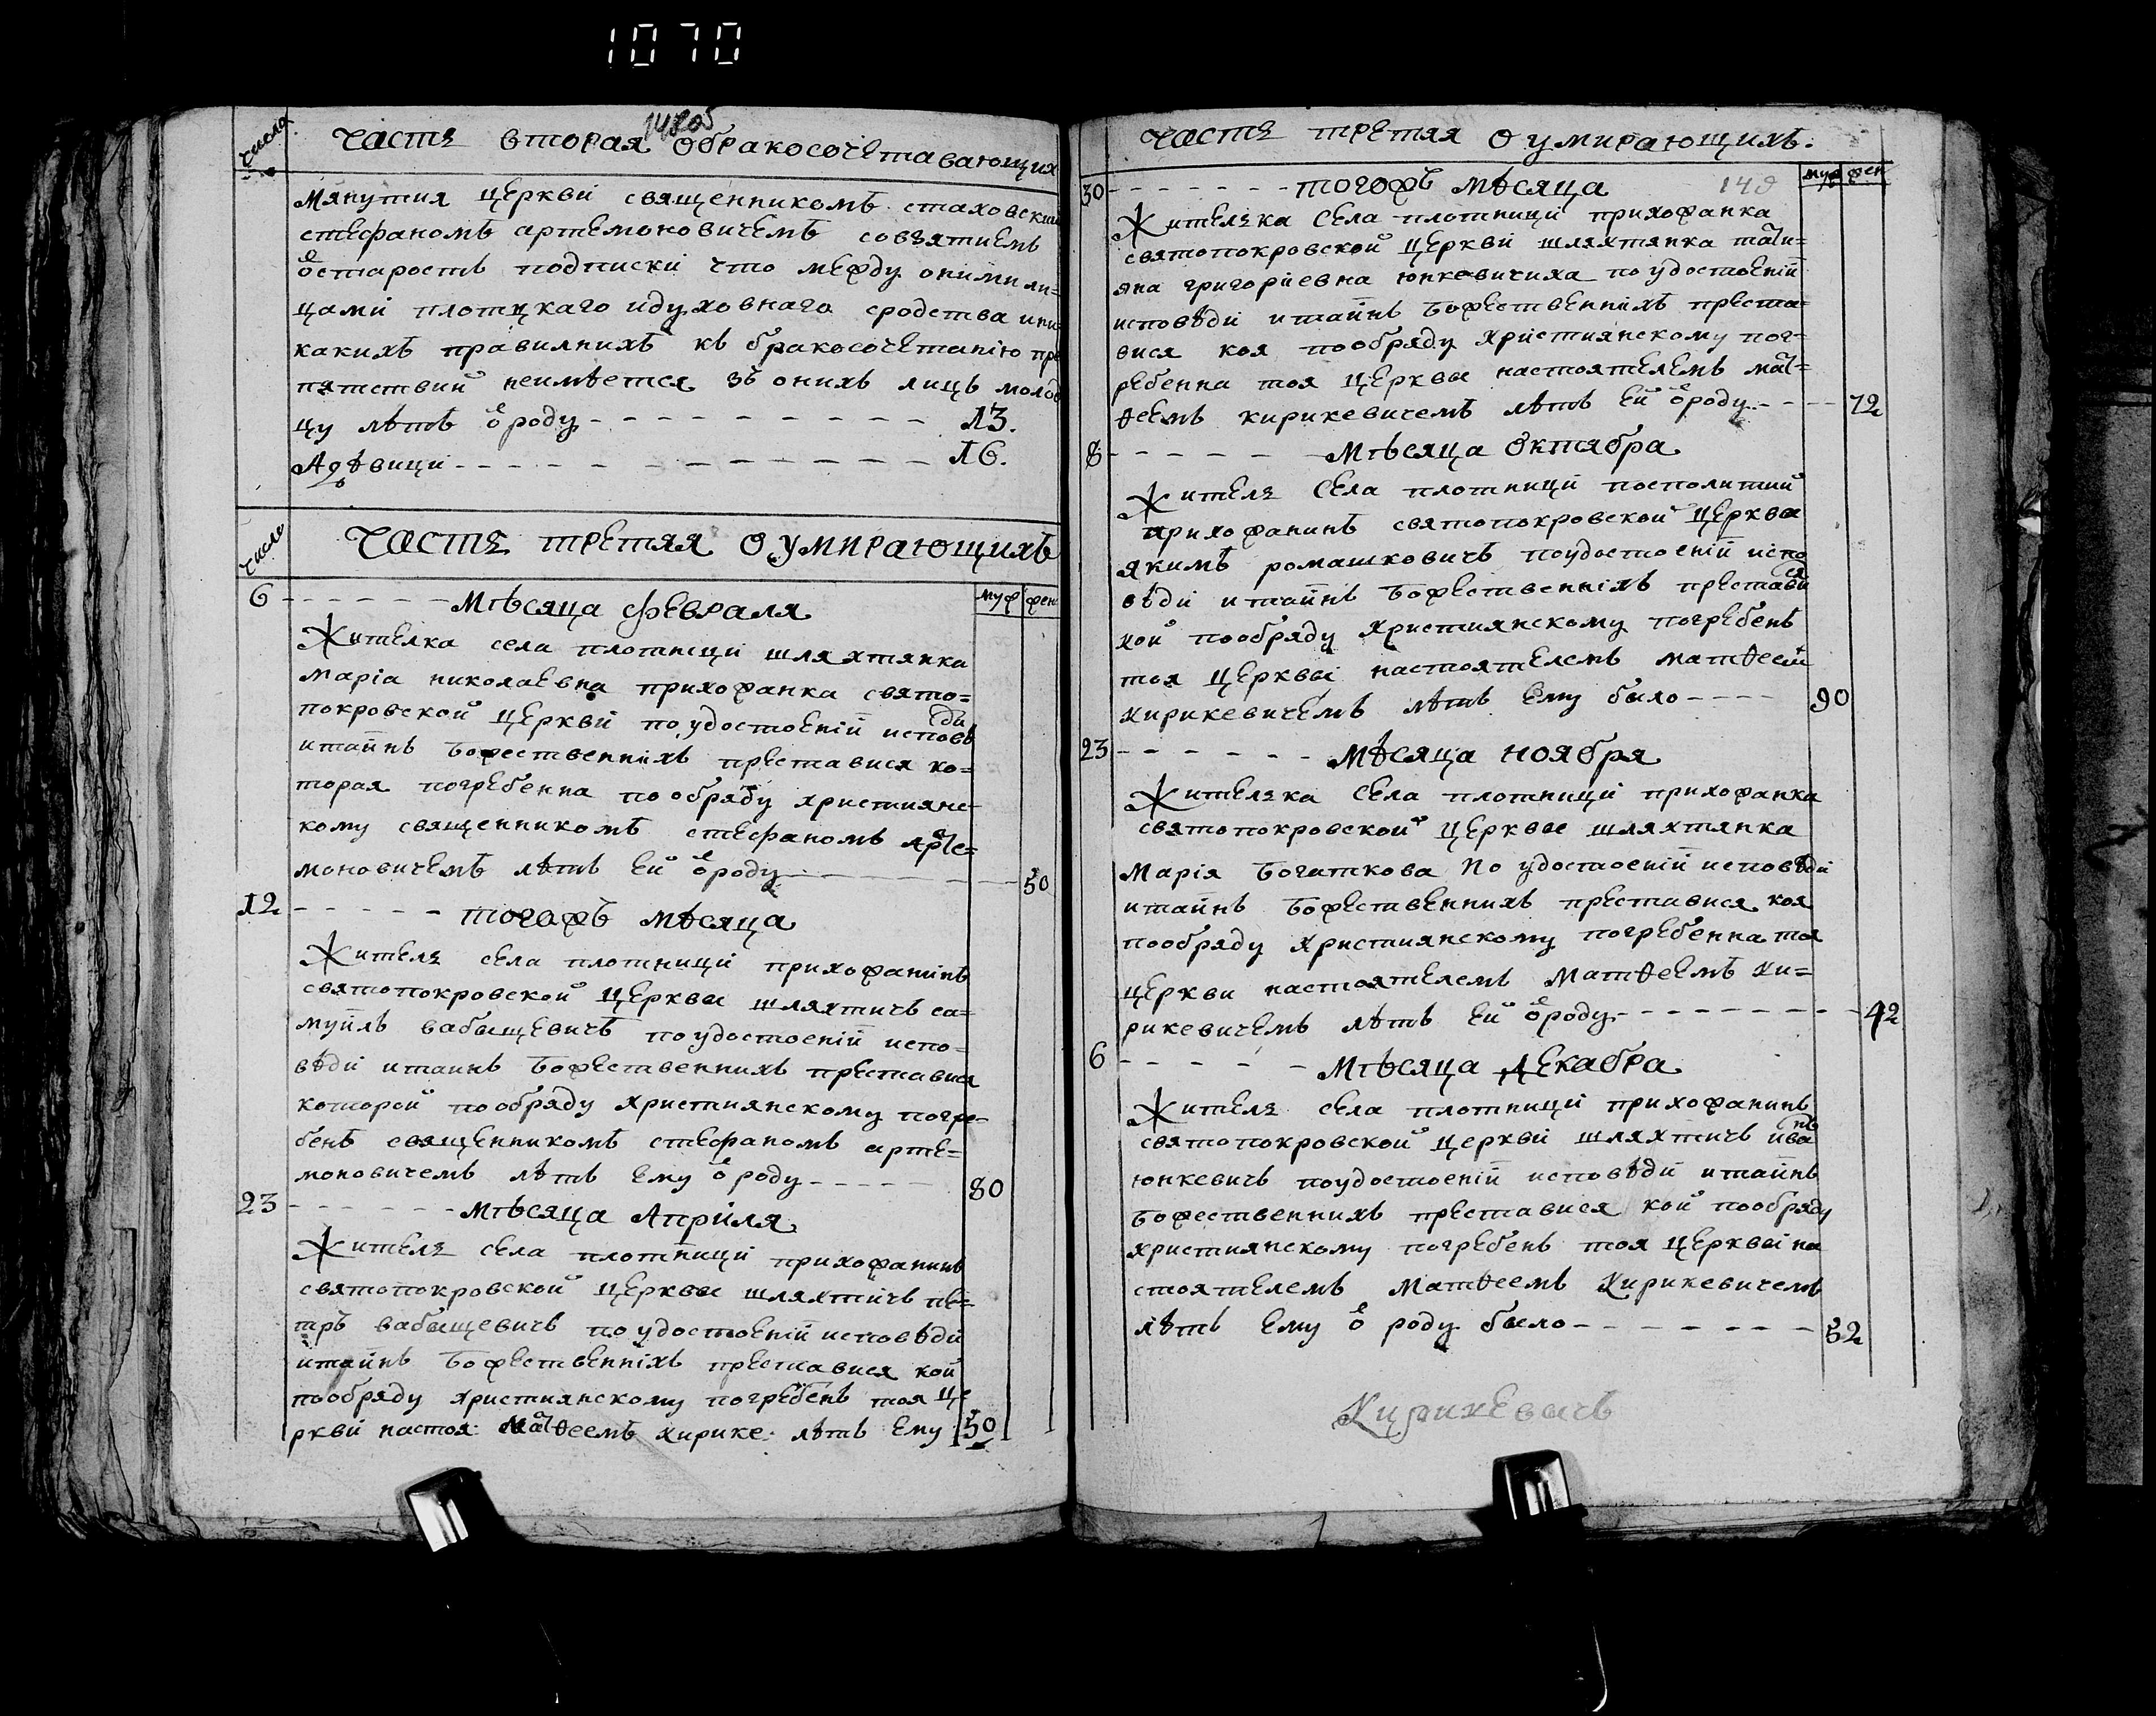 1070
числа
часть вторая обракосочетавающих
мянутия церкви священникомъ стаховским
стефаномъ артемоновичемъ совзятиемъ
ѿстаростъ подписки что между оними ли=
цами плотцкаго идуховнаго сродства ини
какихъ правилнихъ къ бракосочетанію пре
пятствий неимѣется зъ онихъ лицъ молод
цу лѣтъ ѿроду - - - - - - - - - 13.
Адѣвици - - - - - - - - - - - 16.
числа
часть третяя оумирающихъ
муж жен
6 - - - - - - мѣсяца февраля
Жителка села плотници шляхтянка
маріа николаевна прихожанка свято=
покровской церкви поудостоеній исповѣди
итайнъ божественнихъ преставися ко=
торая погребенна пообряду християнс=
кому священникомъ стефаномъ арте=
моновичемъ лѣтъ ей ѿроду - - - 50
12 - - - - - тогожъ мѣсяца
Житель села плотници прихожанинъ
святопокровской церкви шляхтичъ са=
муйлъ вабищевичъ поудостоеній испо=
вѣди итаинъ божественнихъ преставися
которой пообряду християнскому погре=
бенъ священникомъ стефаномъ арте=
моновичемъ лѣтъ ему ѿроду - - - - - 80
23 - - - - - - мѣсяца Апріля
Житель села плотници прихожанинъ
святопокровской церкви шляхтичъ пе=
тръ вабищевичъ поудостоеній исповѣди
итайнъ божественніхъ преставися кой
пообряду християнскому погребенъ тоя це
ркви настоя: матѳеемъ кирике: лѣтъ ему 50
часть третяя оумирающихъ.
муж жен
30 - - - - - - - тогожъ мѣсяца 149
Жителька села плотници прихожанка
святопокровской церкви шляхтянка тати=
яна григоріевна юнкевичиха поудостоеній
исповѣди итайнъ божественніхъ преста=
вися коя пообряду християнскому пог=
ребенна тоя церкви настоятелемъ мат=
ѳеемъ кирикевичемъ лѣтъ ей ѿроду - - - - 72
8 - - - - - - мѣсяца октября
Житель села плотници посполитий
прихожанинъ святопокровской церкви
якимъ ромашковичъ поудостоеній испо
вѣди итайнъ божественніхъ преставися
кой пообряду християнскому погребенъ
тоя церкви настоятелемъ матѳеем
кирикевичемъ лѣтъ ему било - - - - 90
23 - - - - - - мѣсяца ноября
Жителька села плотници прихожанка
святопокровской церкви шляхтянка
марія богаткова по удостоеній исповѣди
итайнъ божественнихъ преставися коя
пообряду християнскому погребенна тоя
церкви настоятелемъ матѳеемъ ки=
рикевичемъ лѣтъ ей ѿроду - - - - - - - - 42
6 - - - - - мѣсяца декабра
Житель села плотници прихожанинъ
святопокровской церкви шляхтичъ иванъ
юнкевичъ поудостоеній исповѣди итайнъ
божественнихъ преставися кой пообряду
християнскому погребенъ тоя церкви на
стоятелемъ матѳеемъ кирикевичемъ
лѣтъ ему ѿ роду било - - - - - - - 52
Кирикевичъ